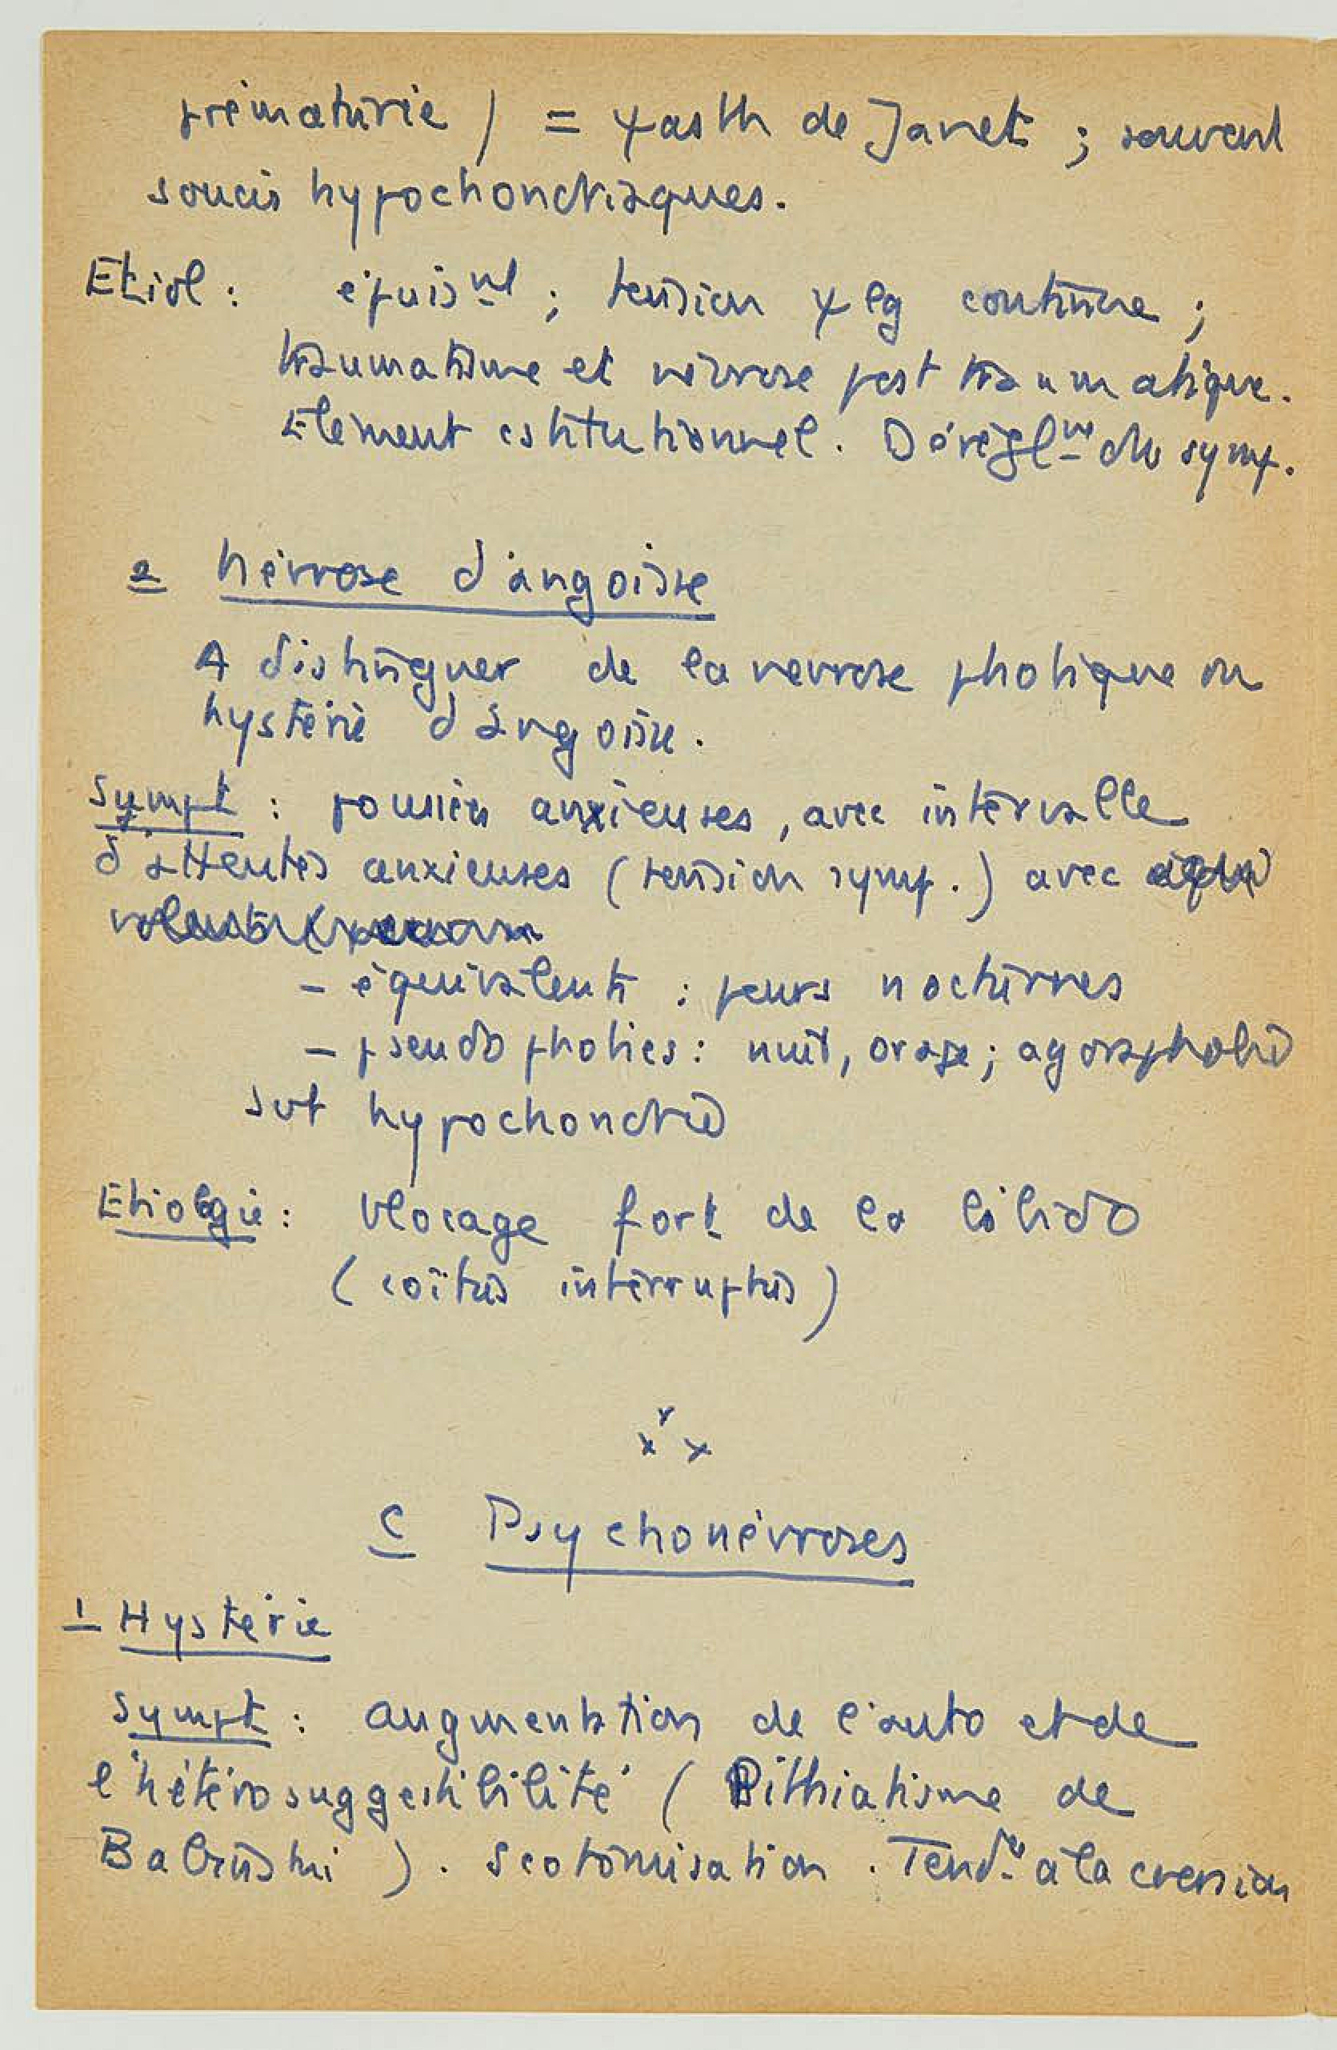 prématurie) = ψasth de Janet ; souvent
soucis hypochondriaques.
Etiol : épuisnt ; tension ψlg continue ;
traumatisme et névrose post traumatique.
Elément cstitutionnel. Déréglnt du symp.
2 Névrose d'angoisse
A distinguer de la nevrose phobique ou
hystérie d'angoisse.
Sympt : poussées anxieuses, avec intervalle
d'attentes anxieuses (tension symp.) avec
- équivalents : peurs nocturnes
- pseudo phobies : nuit, orage ; agoraphobie
svt hypochondrie
Etiologie : blocage fort de la libido
(coïtus interruptus)
x x x
C Psychonévroses
1 Hystérie
Sympt : augmentation de l'auto et de
l'hétérosuggestibilité (Pithiatisme de
Babinski). Scotomisation. Tendce à la cversion